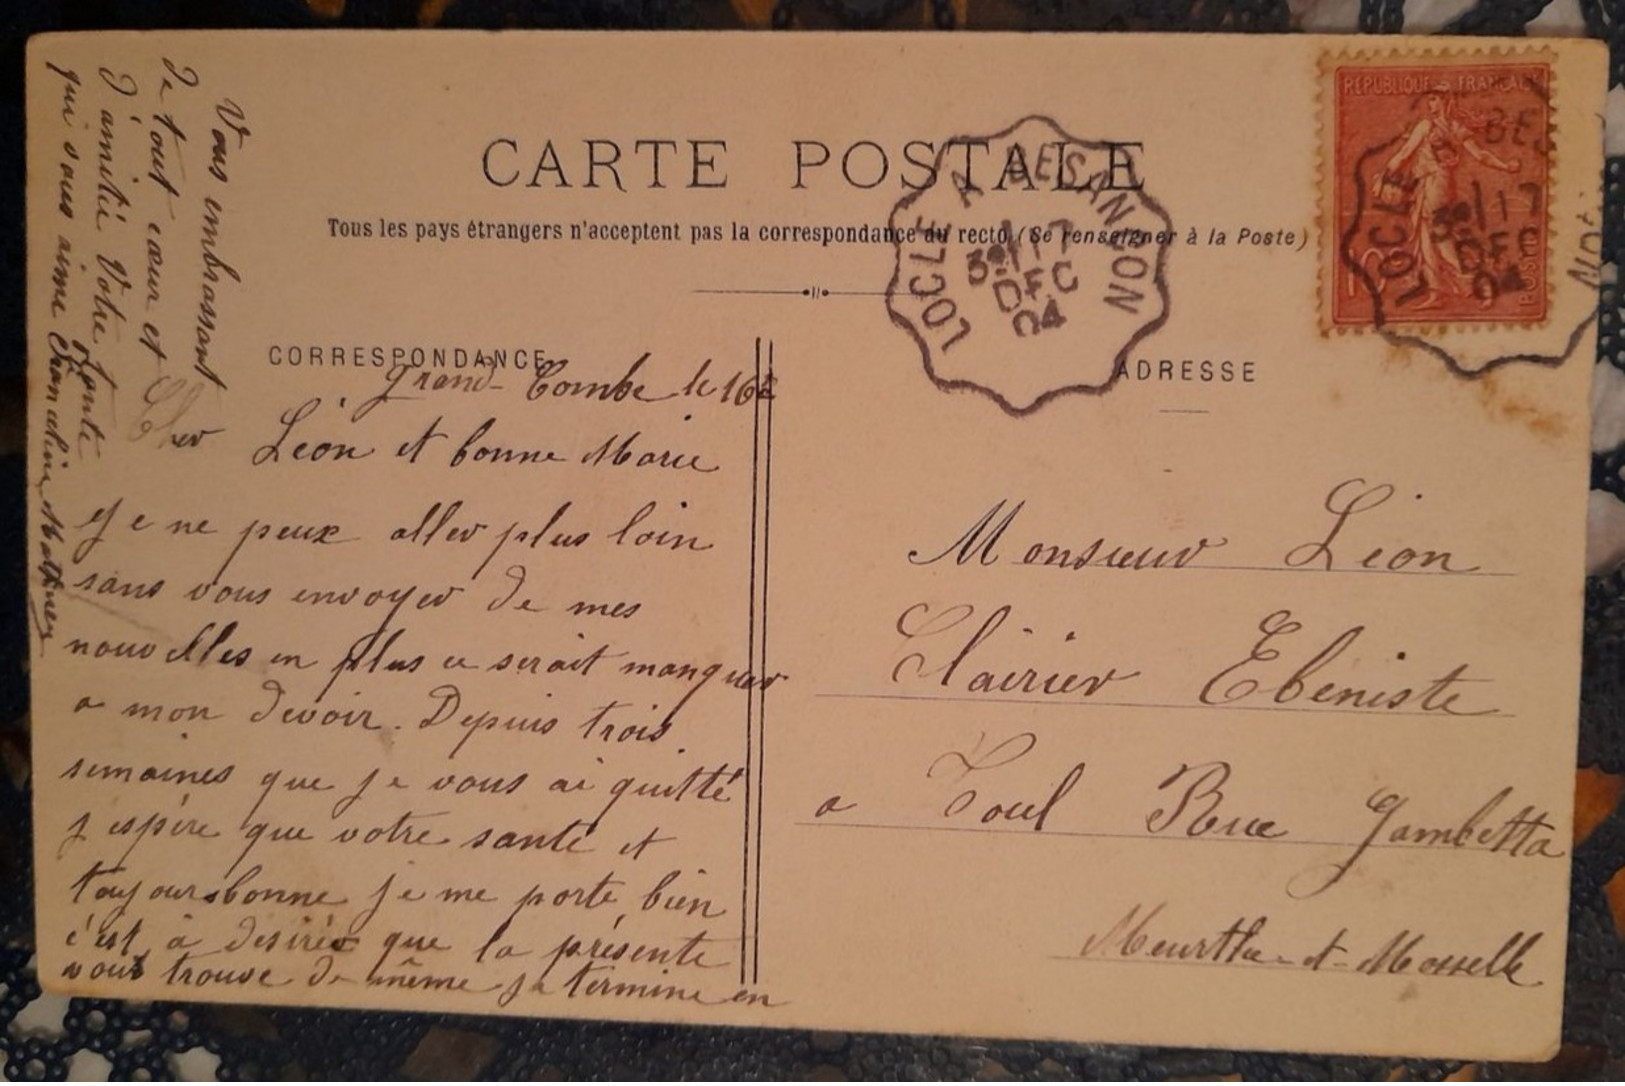 CARTE POSTALE
Tous les pays étrangers n'acceptent pas la correspondance au recto (Se renseigner à la Poste)
REPUBLIQUE FRANCAISE
POSTES
LOCLE A BESANCON
3° 17
DEC
04
BES
LOCLE
3° 17
DEC
04
NOÇ
CORRESPONDANCE
Grand-Combe le 16
Cher
Léon et bonne Marie
Je ne peux aller plus loin
sans vous envoyer de mes
nouvelles en plus ce serait manquer
a mon devoir. Depuis trois
semaines que je vous ai quitté
j espère que votre santé et
toujours bonne je me porte bien
c'est à désirér que la présente
vous trouve de même je termine en
Vous embrassant
de tout cœur et
d'amitié Votre tante
qui vous aime Franceline Mathey
ADRESSE
Monsieur Léon
Clairier Ebéniste
a Toul Rue Gambetta
Meurthe-et-Moselle